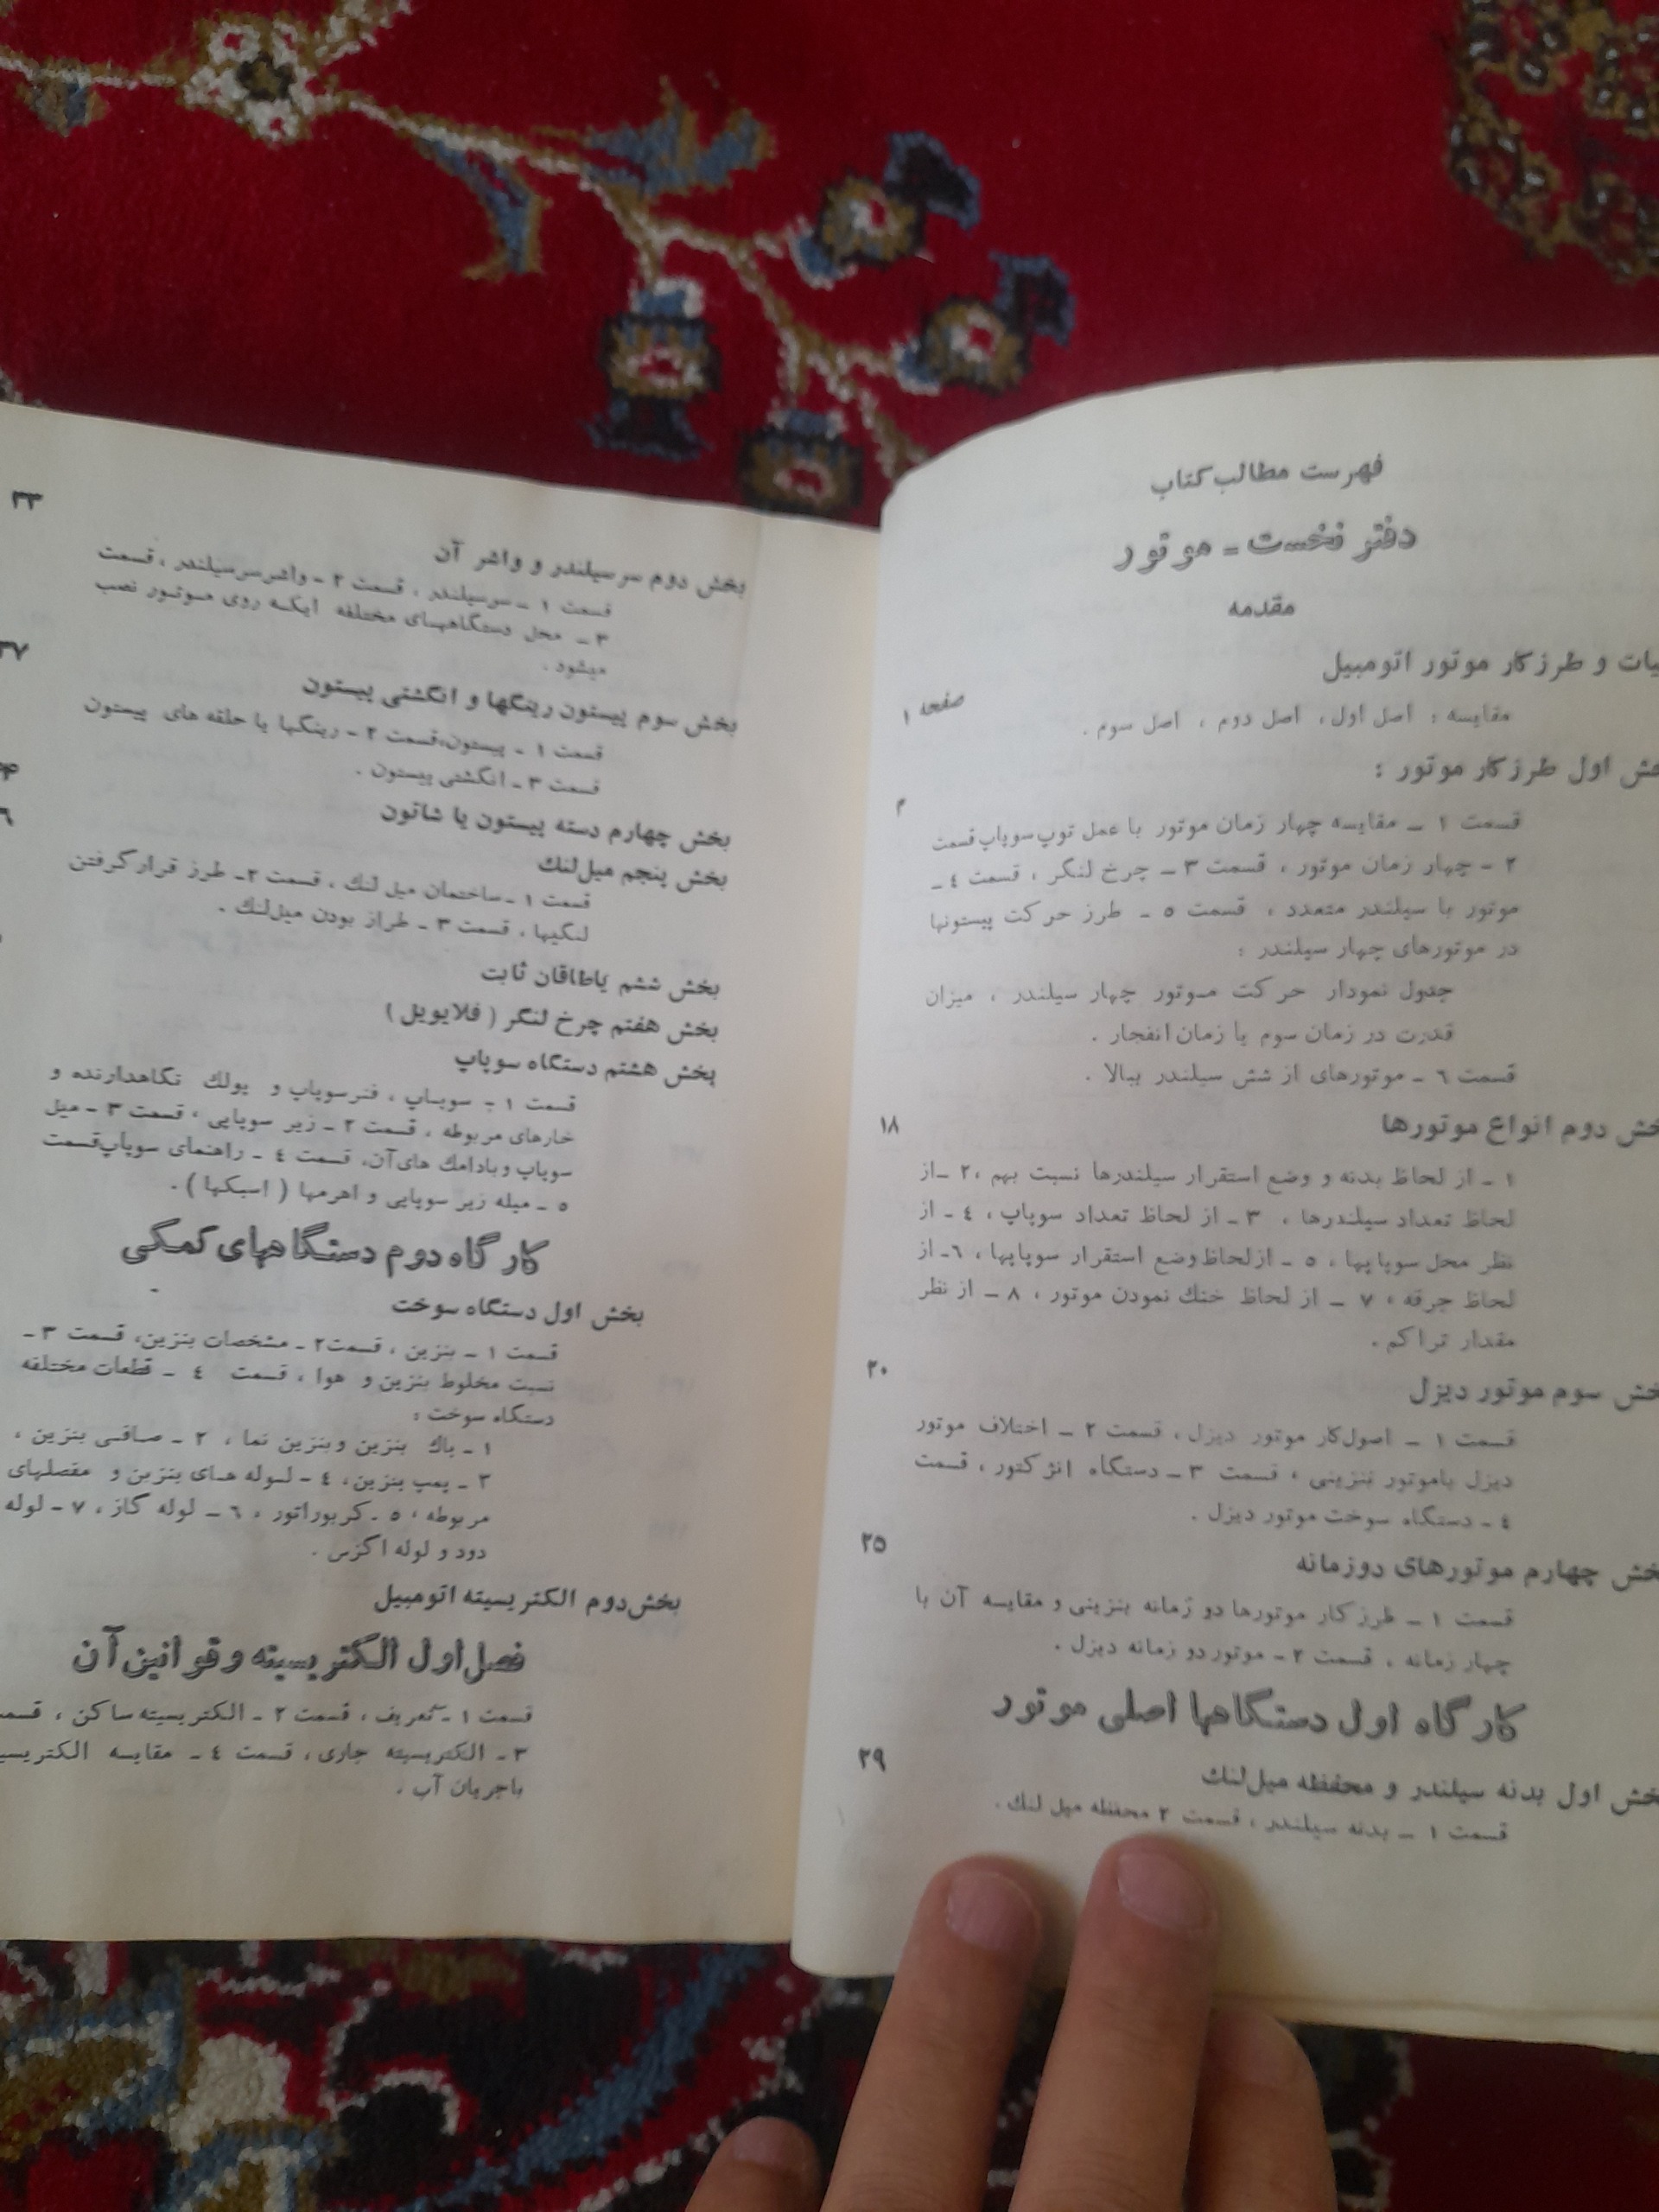 فهرست مطالب کتاب
دفتر نخست - موتور
مقدمه
و طرز کار موتور اتومبیل
مقایسه : اصل اول، اصل دوم ، اصل سوم .
صفحه ۱
اول طرز کار موتور :
قسمت ۱ ــ مقایسه چهار زمان موتور با عمل توپ سوپاپ قسمت
۲ - چهار زمان موتور ، قسمت ۳ ــ چرخ لنگر ، قسمت ٤ ــ
موتور با سیلندر متعدد ، قسمت ٥ ـ طرز حرکت پیستونها
در موتورهای چهار سیلندر :
جدول نمودار حرکت موتور چهار سیلندر ، میزان
قدرت در زمان سوم یا زمان انفجار .
قسمت ٦ - موتورهای از شش سیلندر ببالا .
دوم انواع موتورها ۱۸
۱ - از لحاظ بدنه و وضع استقرار سیلندرها نسبت بهم ،۲ ـ از
لحاظ تعداد سیلندرها ، ۳ ـ از لحاظ تعداد سوپاپ ، ٤ ـ از
نظر محل سوپاپها ، ٥ ـ ازلحاظ وضع استقرار سوپاپها ، ٦ـ از
لحاظ جرقه ، ۷ ــ از لحاظ خنك نمودن موتور ، ۸ ــ از نظر
مقدار تراکم .
سوم موتور دیزل ۲۰
قسمت ۱ ــ اصول کار موتور دیزل ، قسمت ۲ ــ اختلاف موتور
دیزل باموتور بنزینی ، قسمت ۳ ــ دستگاه انژکتور ، قسمت
٤ ـ دستگاه سوخت موتور دیزل .
چهارم موتورهای دوزمانه ۲۵
قسمت ۱ ــ طرز کار موتورها دو زمانه بنزینی و مقایسه آن با
چهار زمانه ، قسمت ۲ - موتور دو زمانه دیزل .
کارگاه اول دستگاهها اصلی موتور
اول بدنه سیلندر و محفظه میل لنك ۲۹
قسمت ۱ ــ بدنه سیلندر ، قسمت ۲ محفظه میل لنك .
بخش دوم سر سیلندر و واشر آن ۳۳
قسمت ۱ ــ سرسیلندر ، قسمت ۲ ـ واشر سر سیلندر ، قسمت
۳ ــ محل دستگاههای مختلفه ایکه روی موتور نصب
میشود .
بخش سوم پیستون رینگها و انگشتی پیستون ۳۷
قسمت ۱ ـ پیستون،قسمت ۲ ـ رینگها یا حلقه های پیستون
قسمت ۳ ـ انگشتی پیستون .
بخش چهارم دسته پیستون یا شاتون
بخش پنجم میل لنك
قسمت ۱ ـ ساختمان میل لنك ، قسمت ۲ـ طرز قرار گرفتن
لنگیها ، قسمت ۳ ـ طراز بودن میل لنك .
بخش ششم یاطاقان ثابت
بخش هفتم چرخ لنگر ( فلایویل )
بخش هشتم دستگاه سوپاپ
قسمت ۱ - سوپاپ ، فنرسوپاپ و پولك نگاهدارنده و
خارهای مربوطه ، قسمت ۲ ـ زیر سوپاپی ، قسمت ۳ ـ میل
سوپاپ و بادامك های آن، قسمت ٤ ـ راهنمای سوپاپ قسمت
٥ ـ میله زیر سوپاپی و اهرمها ( اسبکها ) .
کارگاه دوم دستگاههای کمکی
بخش اول دستگاه سوخت
قسمت ۱ ــ بنزین ، قسمت۲ ـ مشخصات بنزین، قسمت ۳ ــ
نسبت مخلوط بنزین و هوا ، قسمت ٤ ــ قطعات مختلفه
دستگاه سوخت :
۱ ـ باك بنزین و بنزین نما ، ۲ ـ صافی بنزین ،
۳ ـ پمپ بنزین، ٤ ـ لوله های بنزین و مفصلهای
مربوطه ، ٥ ـ کربوراتور ، ٦ ــ لوله گاز ، ۷ ـ لوله
دود و لوله اگزس .
بخش دوم الکتریسیته اتومبیل
فصل اول الکتریسیته و قوانین آن
قسمت ۱ ـ تعریف ، قسمت ۲ ـ الکتریسیته ساکن ،
۳ ـ الکتریسیته جاری ، قسمت ٤ ـ مقایسه
باجریان آب .